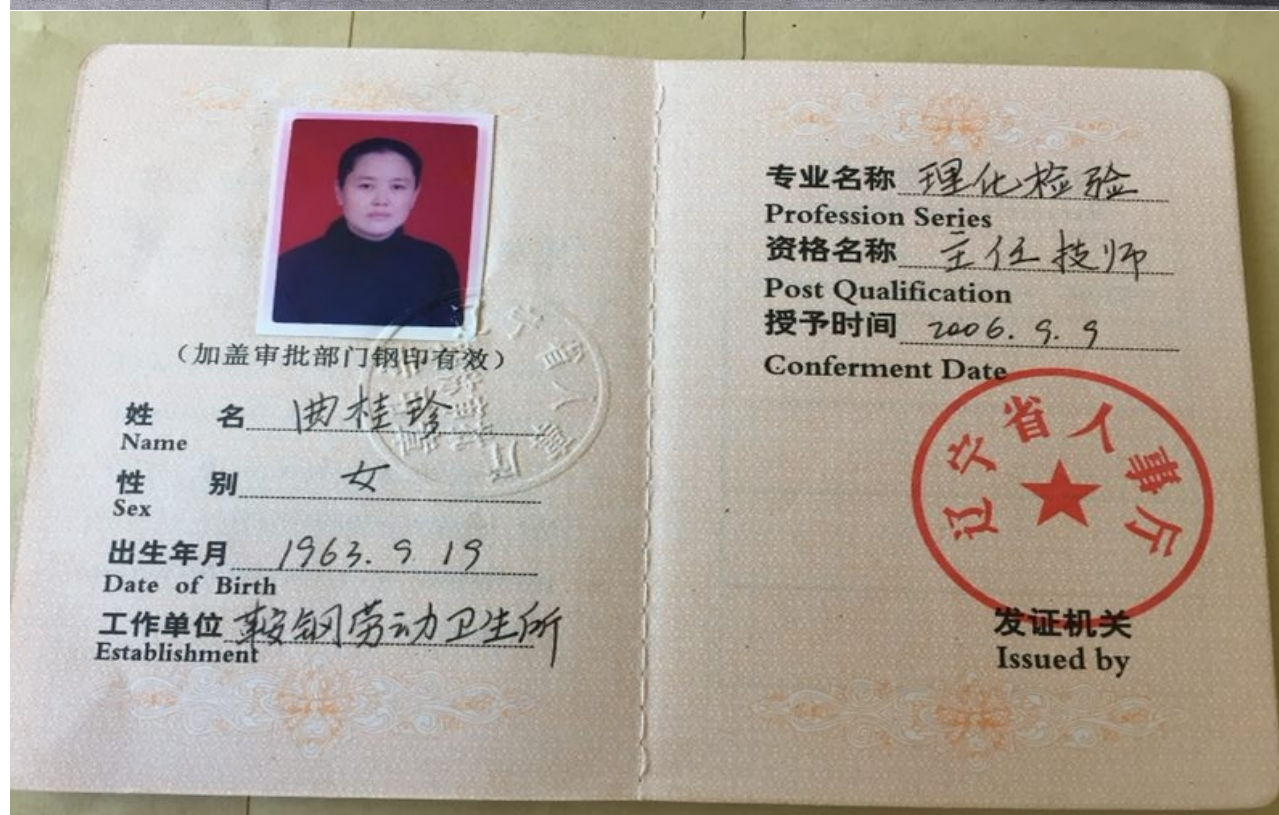 （加盖审批部门钢印有效）
姓 名 曲桂珍
Name
性 别 女
Sex
出生年月 1963.9 19
Date of Birth
工作单位 鞍钢劳动卫生所
Establishment
专业名称 理化检验
Profession Series
资格名称 主任技师
Post Qualification
授予时间 2006.9.9
Conferment Date
辽宁省人事厅
发证机关
Issued by